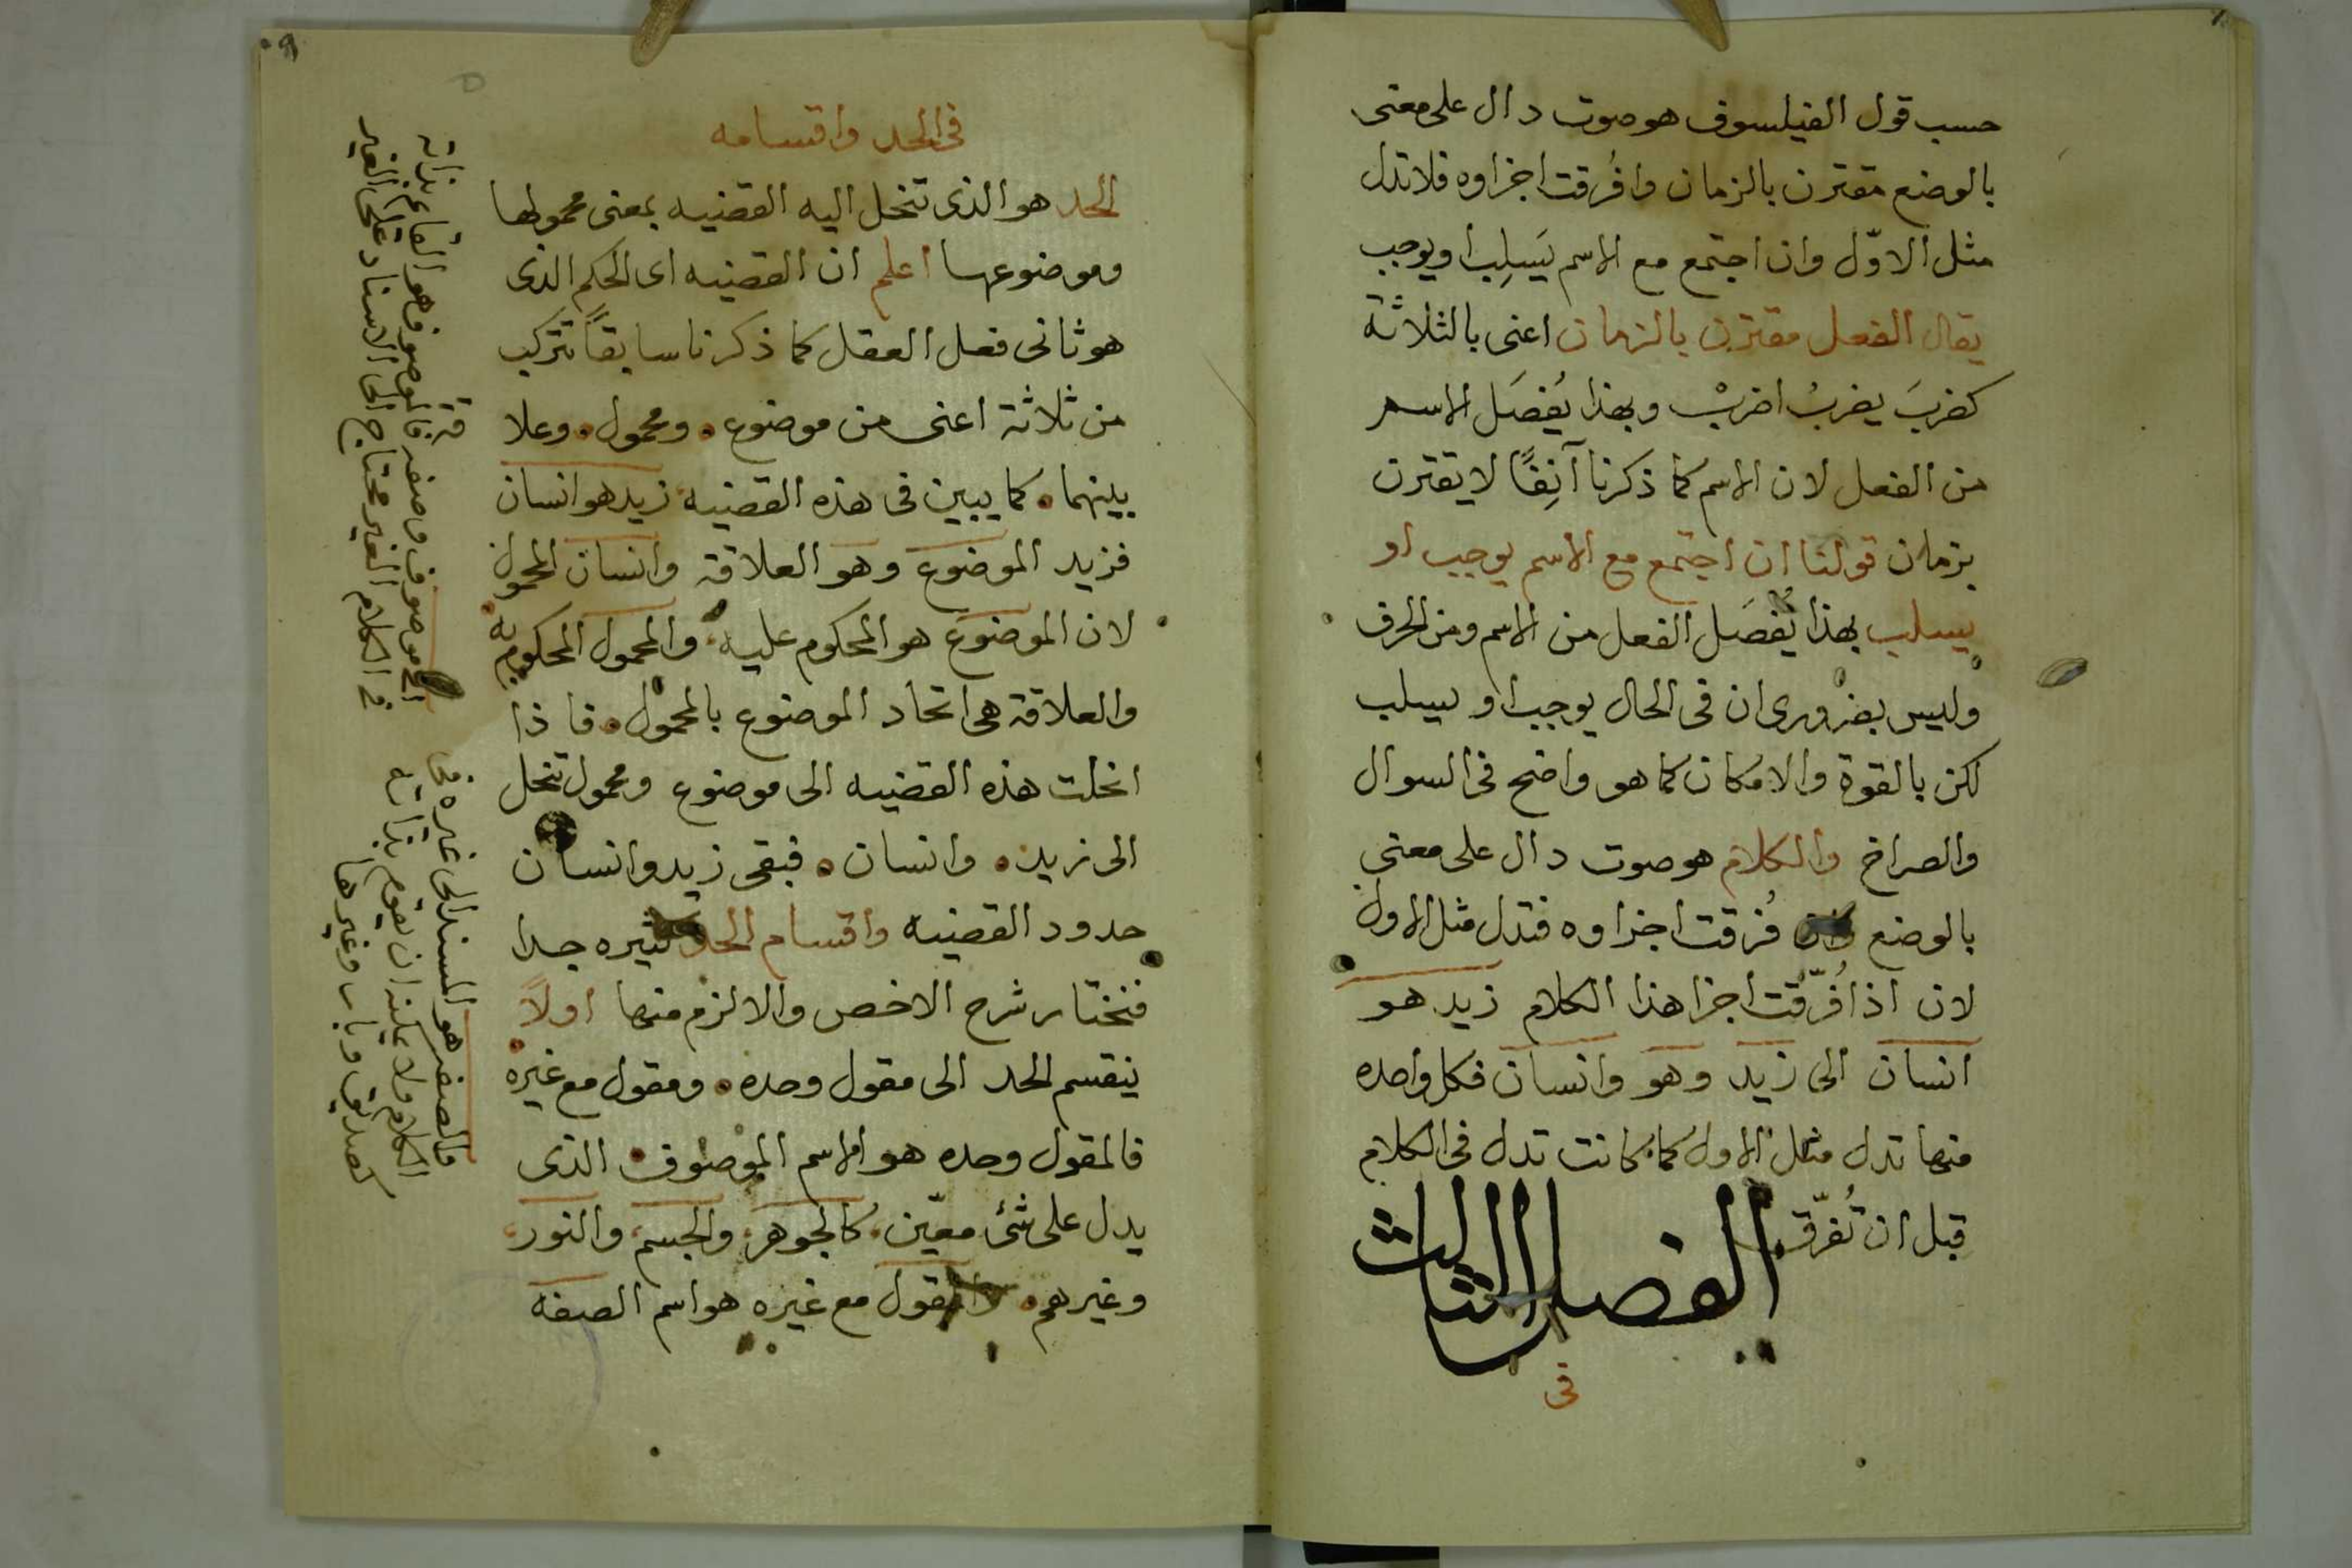 حسب قول الفيلسوف هو صوت دال على معنى
بالوضع مقترن بالزمان وافُرقت اجزاوه فلا تدل
مثل الاوّل وان اجتمع مع الاسم يَسلِب او يوجب
يقال الفعل مقترن بالزمان اعنى بالثلاثة
كضربَ يضربُ اضربْ وبهذا يُفصَل الاسم
من الفعل لان الاسم كما ذكرنا آنِفًا لا يقترن
بزمان قولنا ان اجتمع مع الاسم يوجب او
يسلب بهذا يُفصَل الفعل من الاسم ومن الحرف
وليس بضرورى ان فى الحال يوجب او يسلب
لكن بالقوة والامكان كما هو واضح فى السوال
والصراخ والكلام هو صوت دال على معنى
بالوضع فُرقت اجزاوه فتدل مثل الاول
لان اذا فُرّقت اجزا هذا الكلام زيد هو
انسان الى زيد وهو وانسان فكل واحده
منها تدل مثل الاول كما كانت تدل فى الكلام
قبل ان تُفرّق
الفصل الثالث
فى
٩
فى الحد واقسامه
الحد هو الذى تنحل اليه القضيه بمعنى محمولها
وموضوعها اعلم ان القضيه اى الحكم الذى
هو ثانى فعل العقل كما ذكرنا سابقاً تتركب
من ثلاثة اعنى من موضوع ومحمول وعلا
قة
بينهما كما يبين فى هذه القضيه زيد هو انسان
فزيد الموضوع وهو العلاقة وانسان المحمول
لان الموضوع هو المحكوم عليه والمحمول المحكوم به
والعلاقة هى اتحاد الموضوع بالمحمول فاذا
انحلت هذه القضيه الى موضوع ومحمول تنحل
الى زيد وانسان فبقى زيد وانسان
حدود القضيه واقسام الحد كثيره جدا
فنختار شرح الاخص والالزم منها اولاً
ينقسم الحد الى مقول وحده ومقول مع غيره
فالمقول وحده هو الاسم الموصوف الذى
يدل على شئ معيّن كالجوهر والجسم والنور
وغيرهم والمقول مع غيره هو اسم الصفه
موصوف وصفه فالموصوف هو القائم بذاته
فى الكلام الغير محتاج الى الاسناد على الغير
والصفه هو المسند الى غيره فى
الكلام ولا يمكنه ان يقوم بذاته
كصديق وباب وغيرها